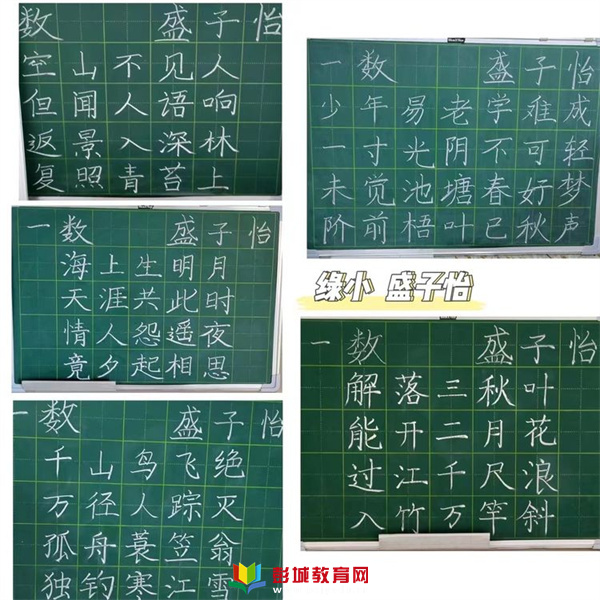 数 盛子怡
空山不见人
但闻人语响
返景入深林
复照青苔上
一数 盛子怡
海上生明月
天涯共此时
情人怨遥夜
竟夕起相思
一数 盛子怡
千山鸟飞绝
万径人踪灭
孤舟蓑笠翁
独钓寒江雪
一数 盛子怡
少年易老学难成
一寸光阴不可轻
未觉池塘春好梦
阶前梧叶已秋声
绿小 盛子怡
一数 盛子怡
解落三秋叶
能开二月花
过江千尺浪
入竹万竿斜
彭城教育网